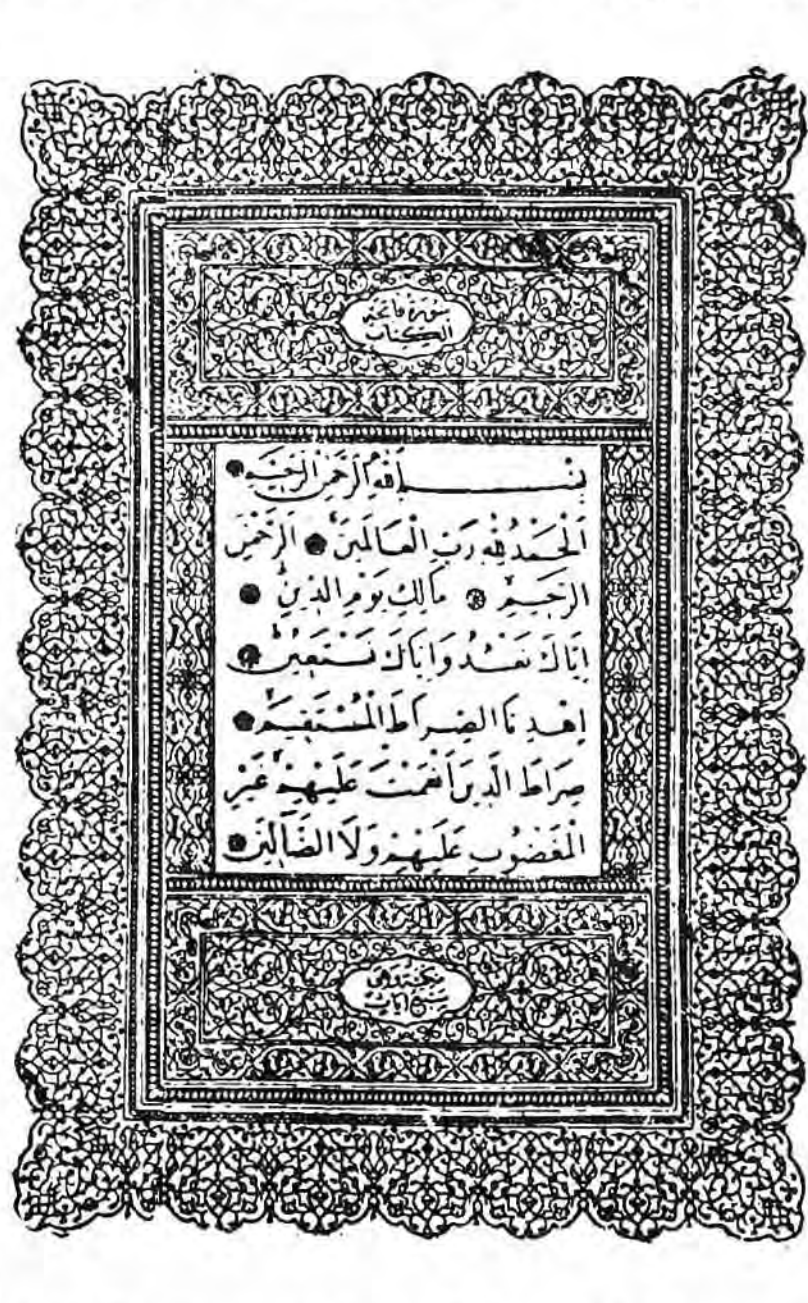 سورة فاتحة
الكتاب
بِسْمِ اللّٰهِ الرَّحْمٰنِ الرَّحِيمِ
اَلْحَمْدُ لِلّٰهِ رَبِّ الْعَالَمِينَ الرَّحْمٰنِ
الرَّحِيمِ مَالِكِ يَوْمِ الدِّينِ
اِيَّاكَ نَعْبُدُ وَاِيَّاكَ نَسْتَعِينُ
اِهْدِنَا الصِّرَاطَ الْمُسْتَقِيمَ
صِرَاطَ الَّذِينَ اَنْعَمْتَ عَلَيْهِمْ غَيْرِ
الْمَغْضُوبِ عَلَيْهِمْ وَلَا الضَّالِّينَ
سبع ايات